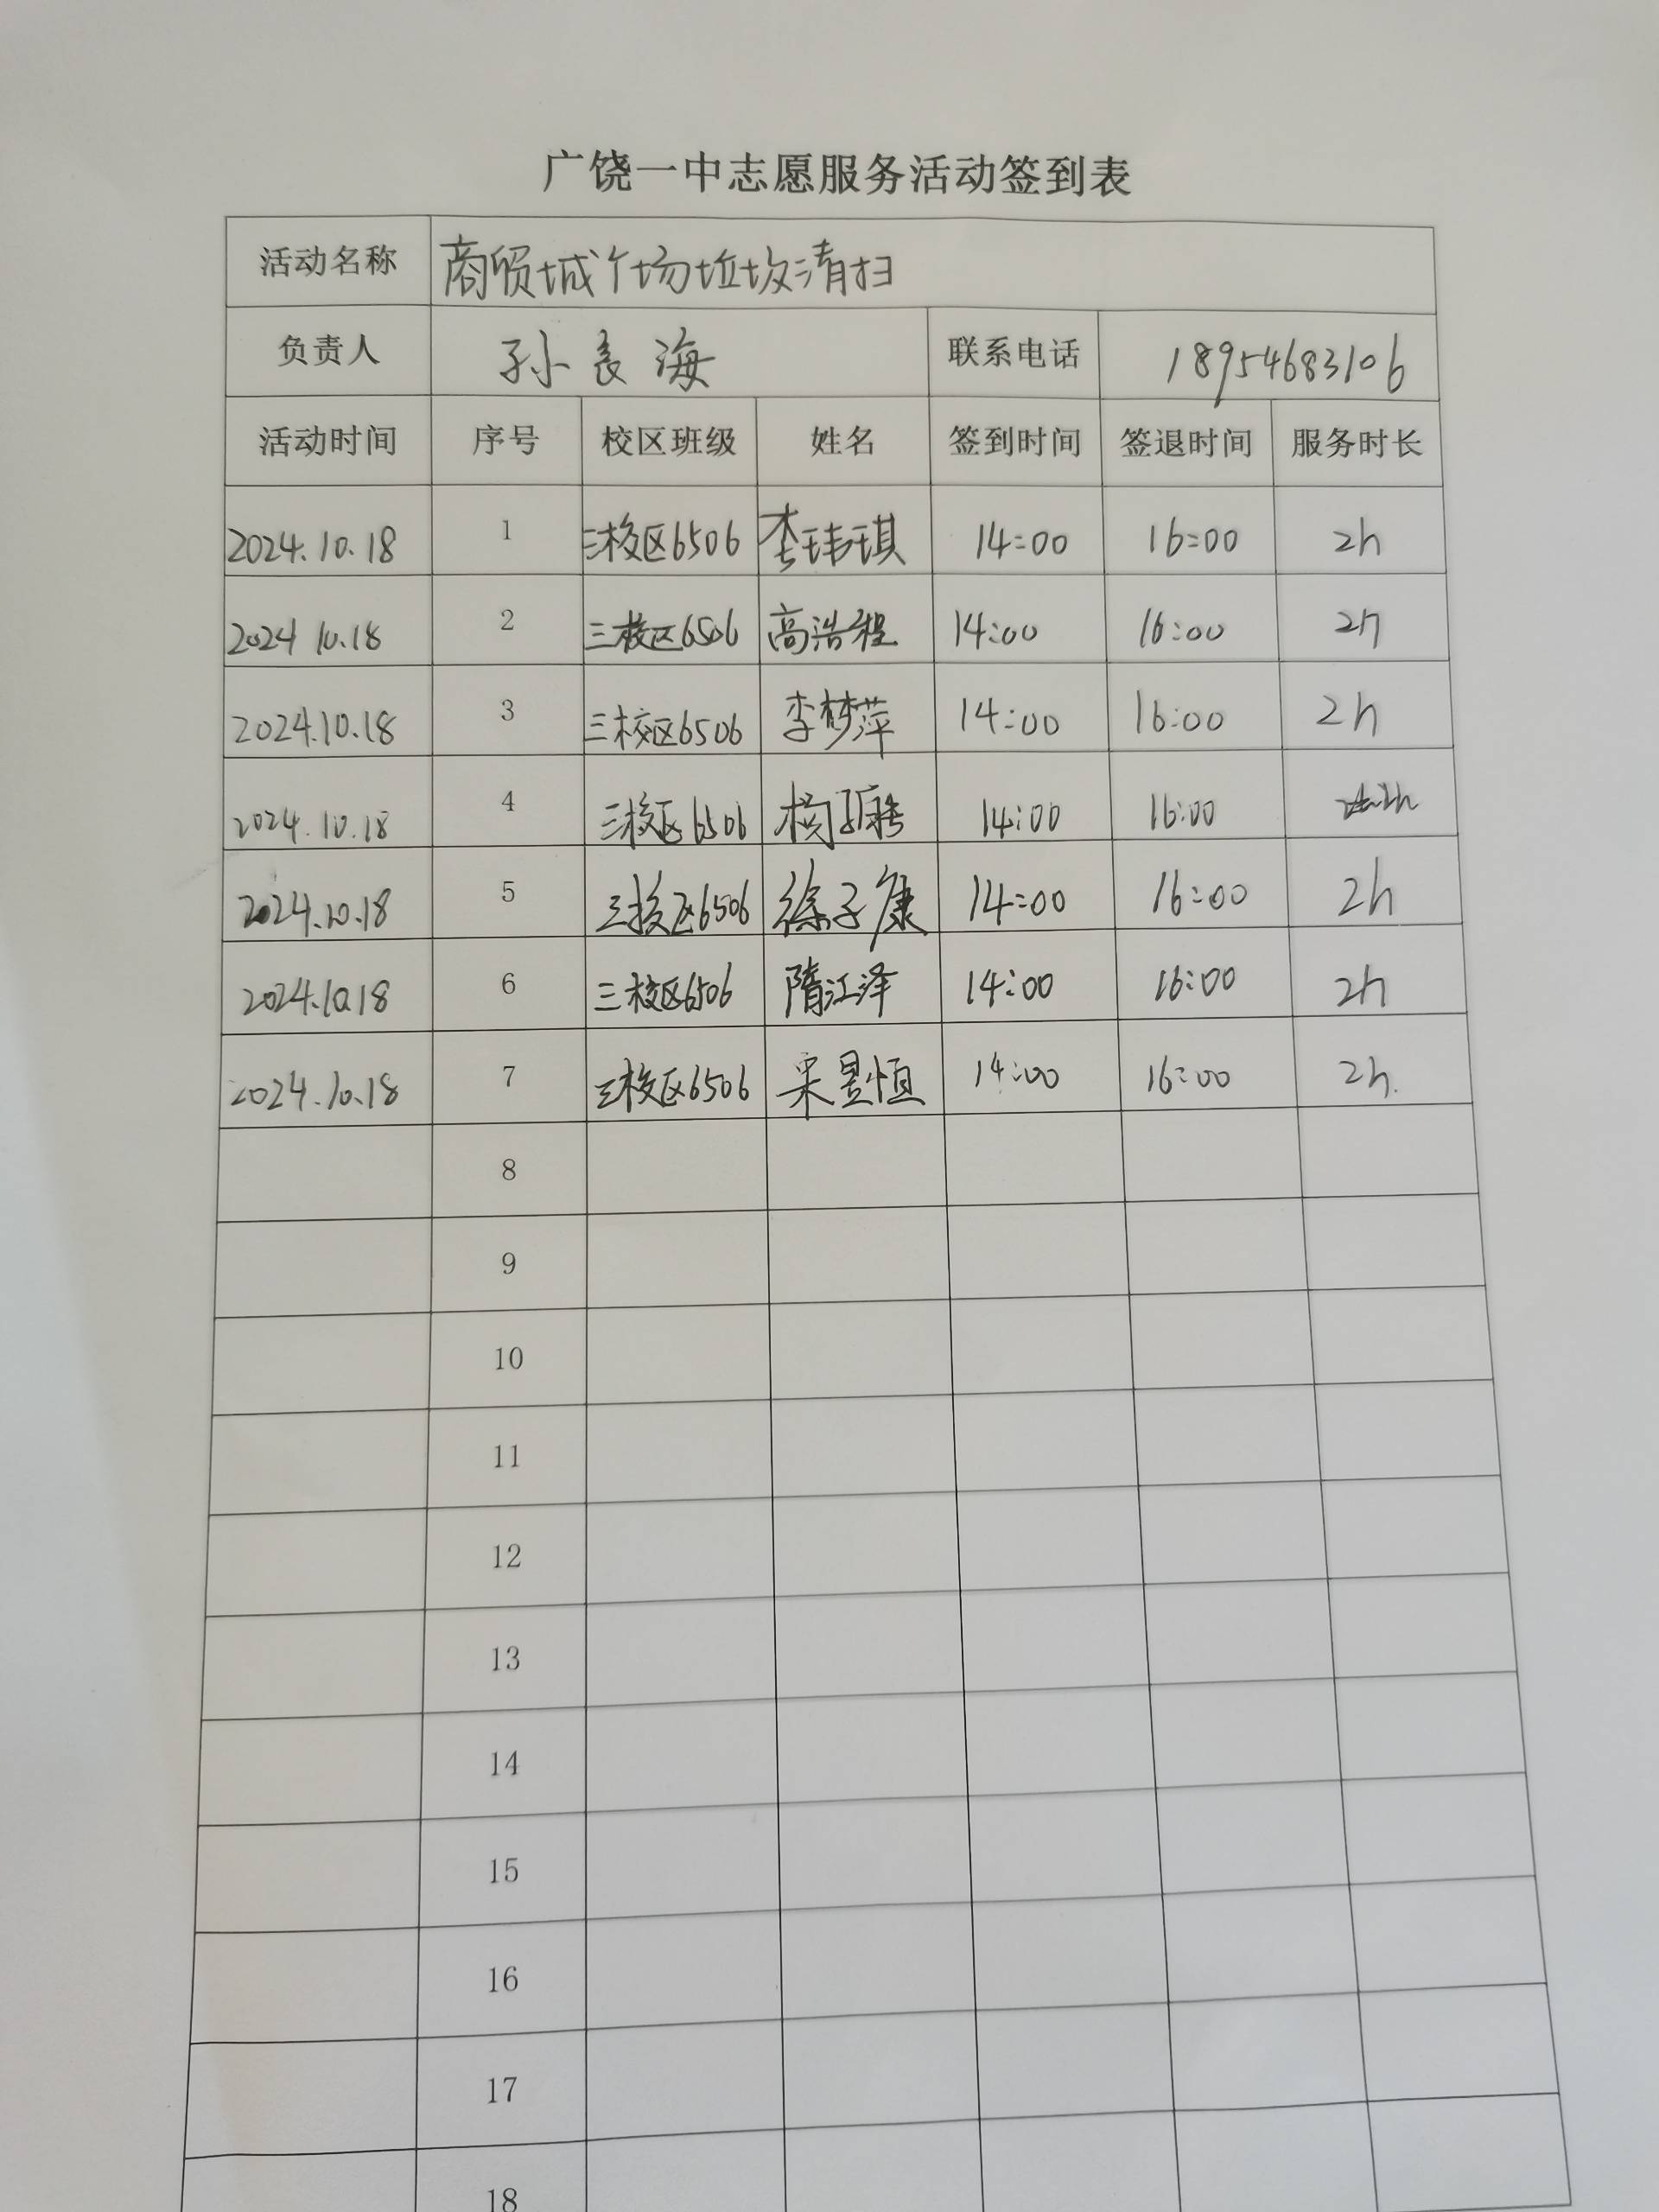 广饶一中志愿服务活动签到表
活动名称 商贸城广场垃圾清扫
负责人 孙良海 联系电话 18954683106
活动时间 序号 校区班级 姓名 签到时间 签退时间 服务时长
2024.10.18 1 三校区6506 李玮琪 14:00 16:00 2h
2024 10.18 2 三校区6506 高浩程 14:00 16:00 2h
2024.10.18 3 三校区6506 李梦萍 14:00 16:00 2h
2024.10.18 4 三校区6506 14:00 16:00
2024.10.18 5 三校区6506 徐子康 14:00 16:00 2h
2024.10.18 6 三校区6506 隋江泽 14:00 16:00 2h
2024.10.18 7 三校区6506 昱恒 14:00 16:00 2h.
8
9
10
11
12
13
14
15
16
17
18